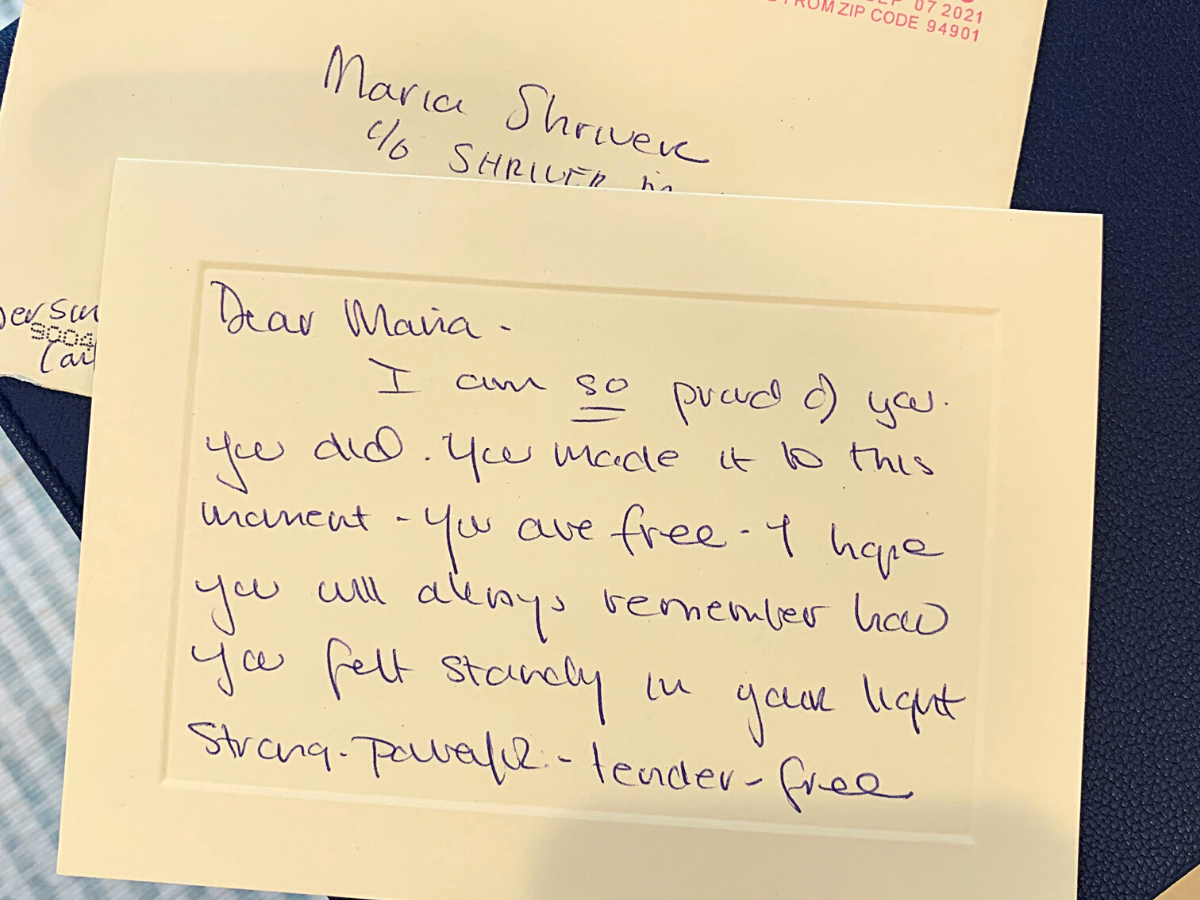 07 2021
FROM ZIP CODE 94901
Maria Shriver
c/o SHRIVER
9004
Dear Maria -
I am so proud of you.
you did. You made it to this
moment - you are free - I hope
you will always remember how
you felt standing in your light
Strong - powerful - tender - free